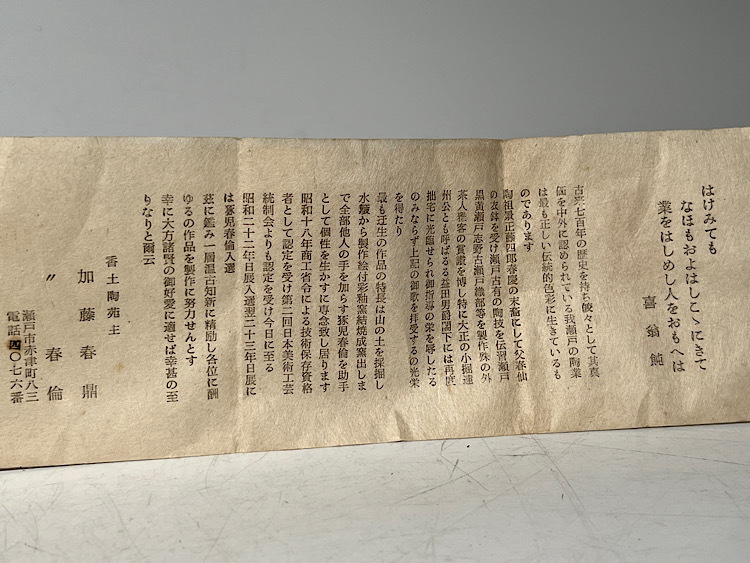 はけみても
なほもおよはしこゝにきて
業をはしめし人をおもへは
喜翁鈍
古来七百年の歴史を持ち儼々として其真
価を中外に認められている我瀬戸の陶業
は最も正しい伝統的色彩に生きているも
のであります
陶祖景正藤四郎春慶の末裔にして父春仙
の友鋒を受け瀬戸古有の陶技を伝習瀬戸
黒黄瀬戸志野古瀬戸織部等を製作殊の外
茶人雅客の賞讃を博し特に大正の小堀遠
州公とも呼ばるる益田男爵閣下には再度
拙宅に光臨せられ御指導の栄を辱したる
のみならず上記の御歌を拝受するの光栄
を得たり
最も迂生の作品の特長は山の土を採掘し
水簸から製作絵付彩釉窯結焼成窯出しま
で全部他人の手を加らす豕児春倫を助手
として個性を生かすに専念致し居ります
昭和十八年商工省令による技術保存資格
者として認定を受け第二回日本美術工芸
統制会よりも認定を受け今日に至る
昭和二十二年日展入選翌二十三年日展に
は豕児春倫入選
茲に鑑み一層温古知新に精励し各位に酬
ゆるの作品を製作に努力せんとす
幸に大方諸賢の御好愛に適せば幸甚の至
りなりと爾云
香土陶苑主
加藤春鼎
〃春倫
瀬戸市赤津町八三
電話四〇七六番